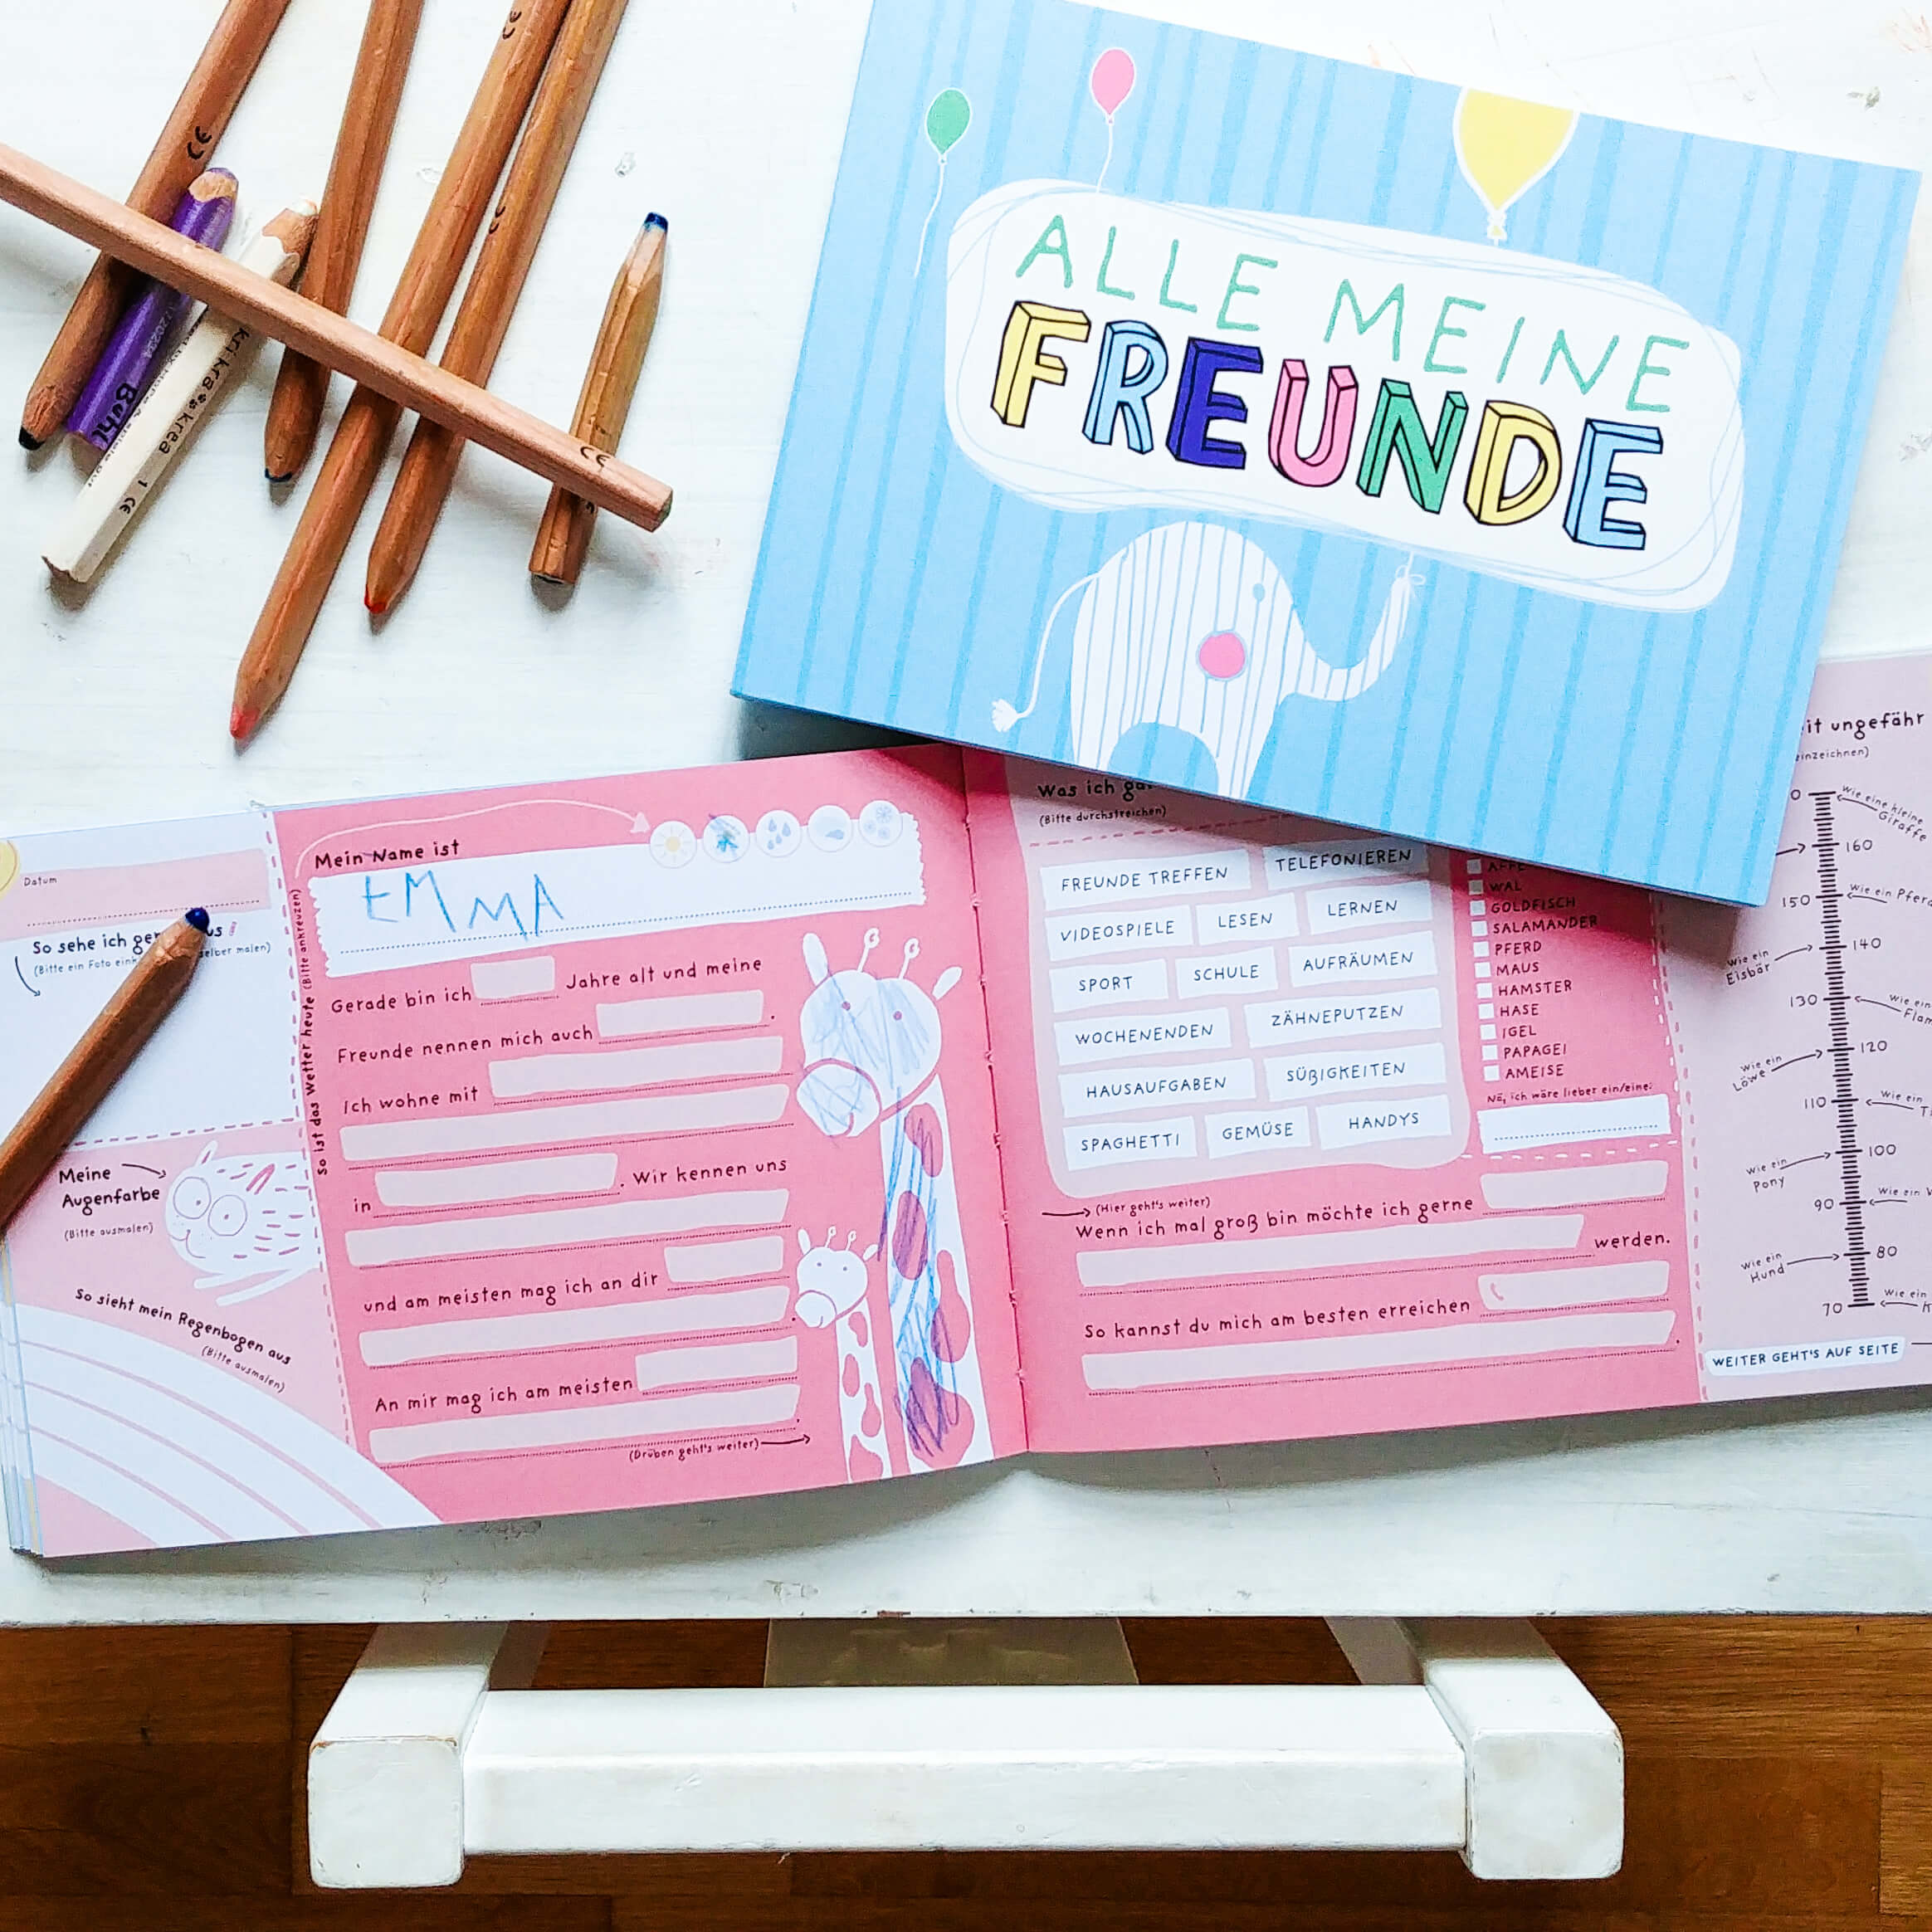 ALLE MEINE
FREUNDE
CE
CE
CE
CE
kri kra krea 1 CE
Datum
So sehe ich
(Bitte ein Foto
selber malen)
Meine
Augenfarbe
(Bitte ausmalen)
So sieht mein Regenbogen aus
(Bitte ausmalen)
So ist das Wetter heute (Bitte ankreuzen)
Mein Name ist
EMMA
Gerade bin ich Jahre alt und meine
Freunde nennen mich auch .
Ich wohne mit
in . Wir kennen uns
und am meisten mag ich an dir
.
An mir mag ich am meisten
.
(Drüben geht's weiter)
Was ich
(Bitte durchstreichen)
FREUNDE TREFFEN TELEFONIEREN
VIDEOSPIELE LESEN LERNEN
SPORT SCHULE AUFRÄUMEN
WOCHENENDEN ZÄHNEPUTZEN
HAUSAUFGABEN SÜßIGKEITEN
SPAGHETTI GEMÜSE HANDYS
AFFE
WAL
GOLDFISCH
SALAMANDER
PFERD
MAUS
HAMSTER
HASE
IGEL
PAPAGEI
AMEISE
Nö, ich wäre lieber ein/eine:
(Hier geht's weiter)
Wenn ich mal groß bin möchte ich gerne
werden.
So kannst du mich am besten erreichen
.
ungefähr
Wie eine kleine
Giraffe
160
150 Wie ein
140
Wie ein
Eisbär
130 Wie ein
120
Wie ein
Löwe
110 Wie ein
100
Wie ein
Pony
90 Wie ein
80
Wie ein
Hund
70 Wie ein
WEITER GEHT'S AUF SEITE